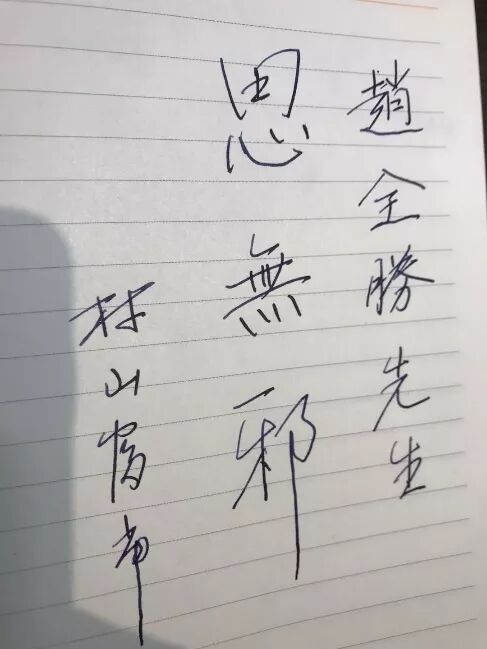 趙全勝先生
思無邪
村山富市